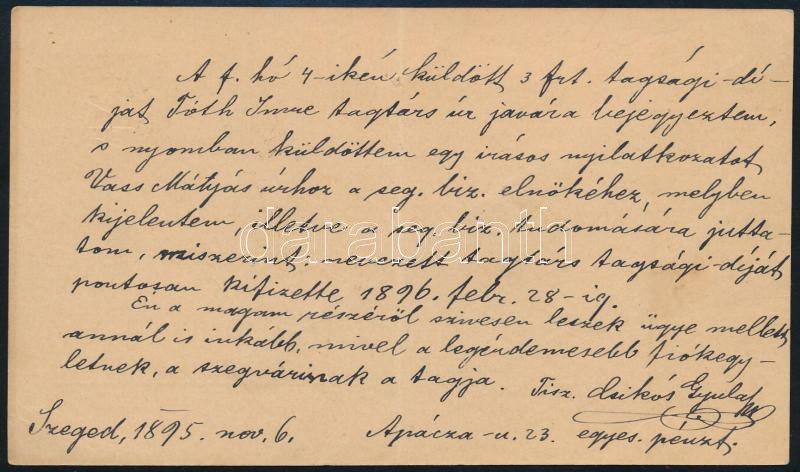 A f. hó 4-ikén küldött 3 frt. tagsági-dí-
ját Tóth Imre tagtárs úr javára bejegyeztem,
s nyomban küldöttem egy irásos nyilatkozatot
Vass Mátyás úrhoz a seg. biz. elnökéhez, melyben
kijelentem, illetve a seg. biz. tudomására jutta-
tom, miszerint nevezett tagtárs tagsági-díját
pontosan kifizette 1896. febr. 28-ig.
Én a magam részéről szivesen leszek ügye mellett
annál is inkább, mivel a legérdemesebb fiókegy-
letnek, a szegvárinak a tagja. Tisz. Csikós Gyula
Szeged, 1895. nov. 6. Apácza-u. 23. egyes. pénzt.
darabanth